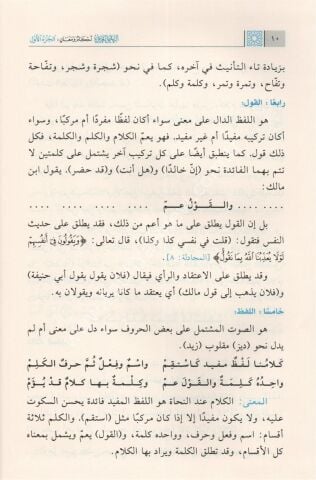 ١٠
أحكام ومعان: الجزء الأول
بزيادة تاء التأنيث في آخره، كما في نحو (شجرة وشجر، وتفّاحة
وتفّاح، وتمرة وتمر، وكلمة وكلم).
رابعًا: القول:
هو اللفظ الدال على معنى سواء أكان لفظًا مفردًا أم مركبًا، وسواء
أكان تركيبه مفيدًا أم غير مفيد. فهو يعمّ الكلام والكلم والكلمة، فكل
ذلك قول. كما ينطبق أيضًا على كل تركيب آخر يشتمل على كلمتين لا
تتم بهما الفائدة نحو (إنّ خالدًا) و(هل أنت) و(قد حضر). يقول ابن
مالك:
.... .... .... .... والقَـوْلُ عـمّ .... .... .... ....
بل إن القول يطلق على ما هو أعم من ذلك، فقد يطلق على حديث
النفس فتقول: (قلت في نفسي كذا وكذا)، قال تعالى: ﴿وَيَقُولُونَ فِي أَنفُسِهِمْ
لَوْلَا يُعَذِّبُنَا اللَّهُ بِمَا نَقُولُ﴾ [المجادلة: ٨].
وقد يطلق على الاعتقاد والرأي فيقال (فلان يقول بقول أبي حنيفة)
و(فلان يذهب إلى قول مالك) أي يعتقد ما كانا يريانه ويقولان به.
خامسًا: اللفظ:
هو الصوت المشتمل على بعض الحروف سواء دل على معنى أم لم
يدل نحو (ديز) مقلوب (زيد).
كـلامُـنـا لَـفْـظٌ مـفـيـد كـاسـتـقِـمْ واسـمٌ وفِـعْـلٌ ثُـمَّ حـرفٌ الـكَـلِـمْ
واحِـدُهُ كَـلِـمَـةٌ والـقَـوْلُ عَـمْ وكِـلْـمَـةٌ بـهـا كـلامٌ قَـدْ يُـؤَمّْ
المعنى: الكلام عند النحاة هو اللفظ المفيد فائدة يحسن السكوت
عليه، ولا يكون مفيدًا إلا إذا كان مركبًا مثل (استقم). والكلم ثلاثة
أقسام: اسم وفعل وحرف، وواحده كلمة، و(القول) يعمّ ويشمل بمعناه
كل الأقسام، وقد تطلق الكلمة ويراد بها الكلام.